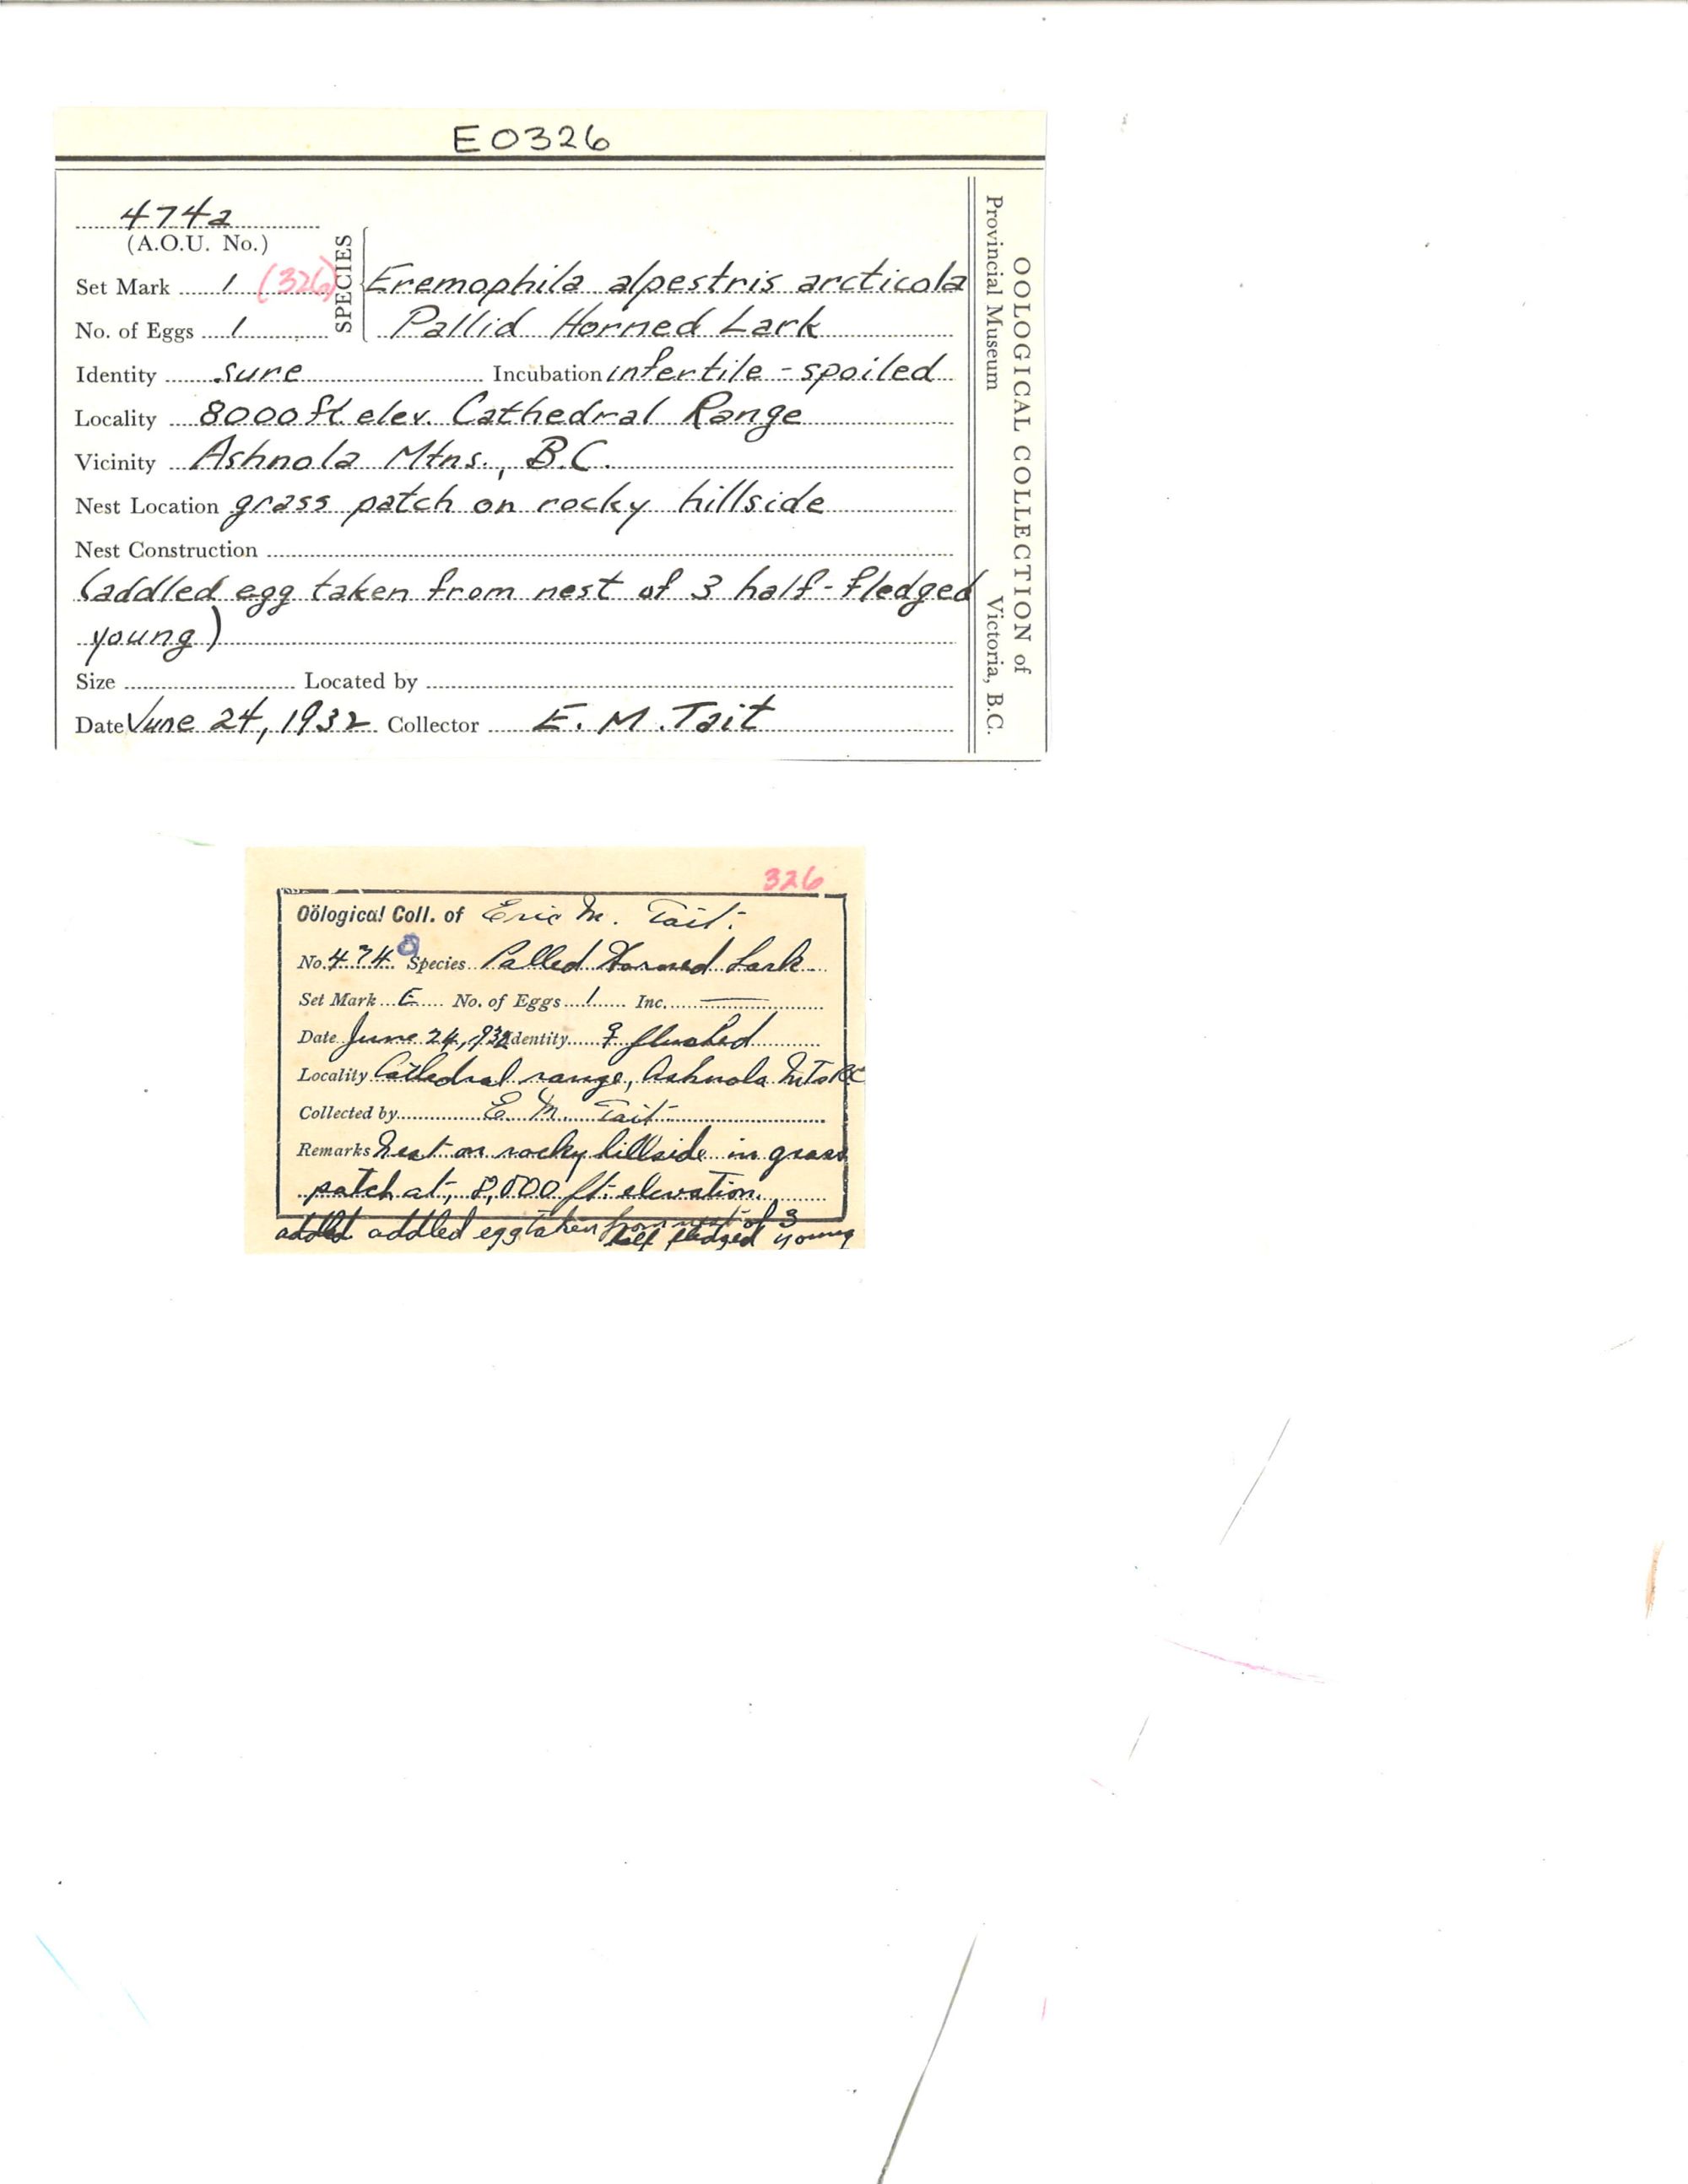 E0326
474a
(A.O.U. No.)
Set Mark 1 (326)
No. of Eggs 1
SPECIES
Eremophila alpestris arcticola
Pallid Horned Lark
Identity sure Incubation infertile - spoiled
Locality 8000 ft. elev. Cathedral Range
Vicinity Ashnola Mtns., B.C.
Nest Location grass patch on rocky hillside
Nest Construction
(addled egg taken from nest of 3 half-fledged
young)
Size Located by
Date June 24, 1932 Collector E. M. Tait
OOLOGICAL COLLECTION of
Provincial Museum Victoria, B.C.
326
Oölogical Coll. of Eric M. Tait.
No. 474a Species Pallid Horned Lark
Set Mark E No. of Eggs 1 Inc. —
Date June 24, 932 Identity ♀ flushed
Locality Cathedral range, Ashnola Mts BC
Collected by E. M. Tait
Remarks Nest on rocky hillside in grass
patch at, 8,000 ft. elevation.
addled egg taken from nest of 3
half fledged young